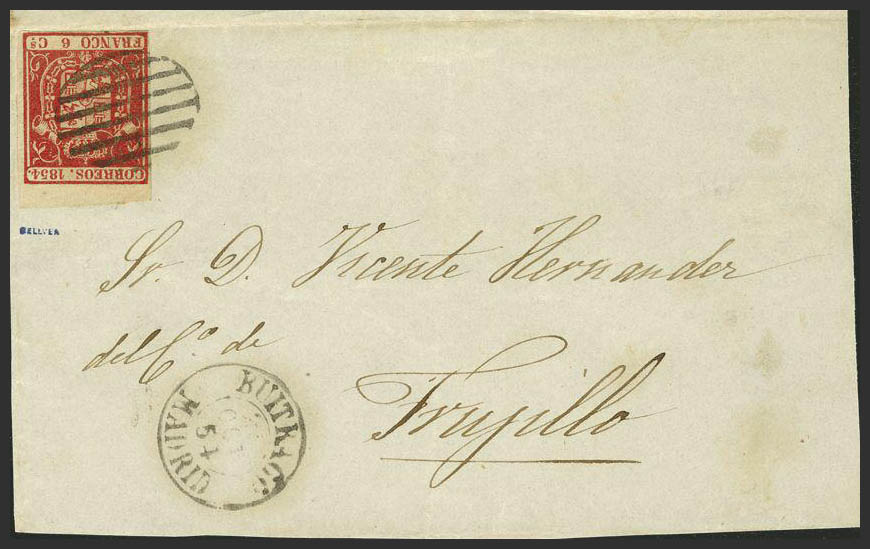 FRANCO 6 Cs
CORREOS. 1854.
BELLVER
Sr. D. Vicente Hernandez
del Co de
Trujillo
BUITRAGO
54
MADRID